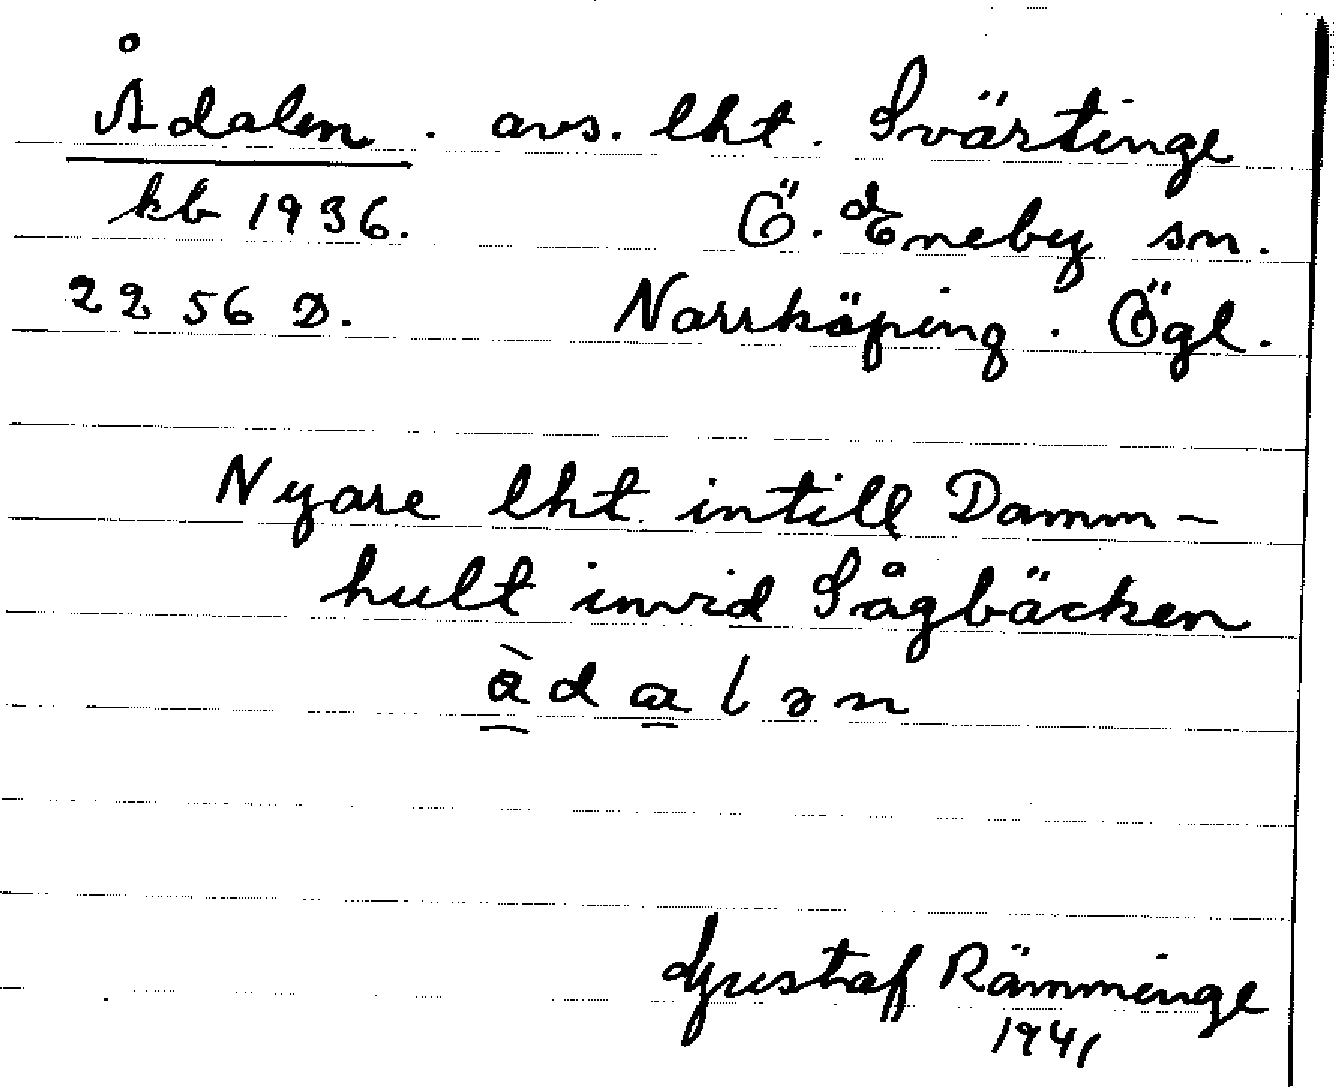 Ådalen. avs. lht. Svärtinge
kb 1936. Ö. Eneby sn.
2256 D. Norrköping. Ögl.
Nyare lht. intill Damm-
hult invid Sågbäcken
ådalən
Gustaf Rämminge
1941